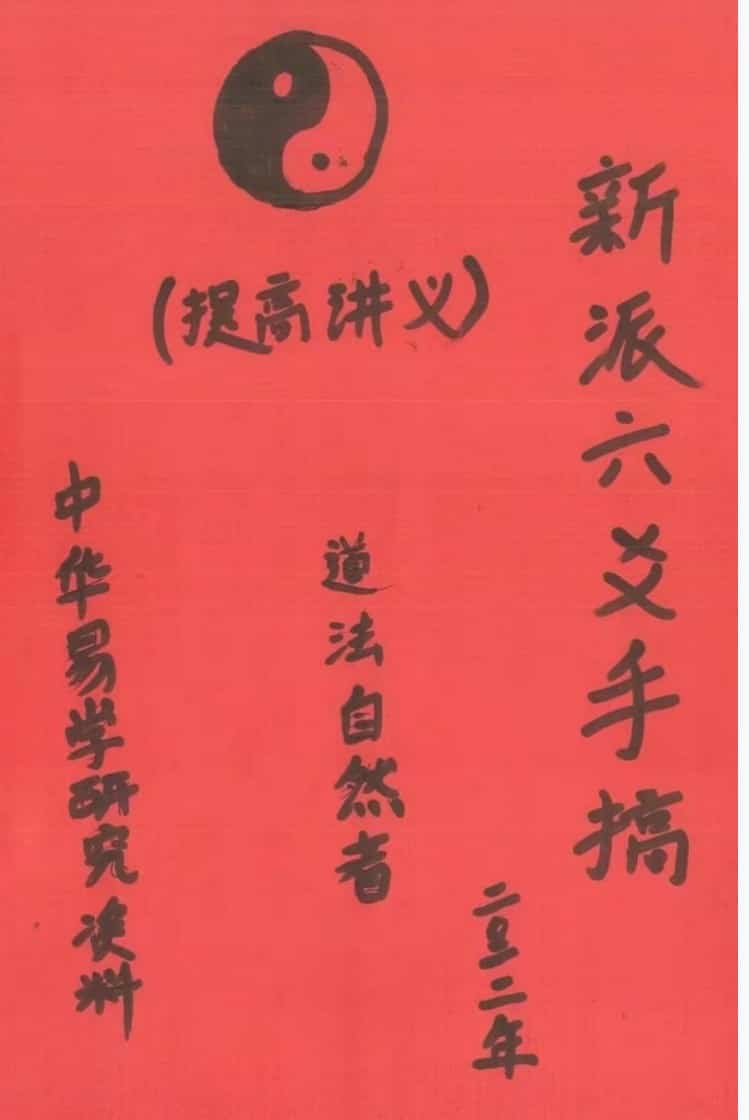 新派六爻手搞
(提高讲义)
二〇一二年
道法自然者
中华易学研究资料